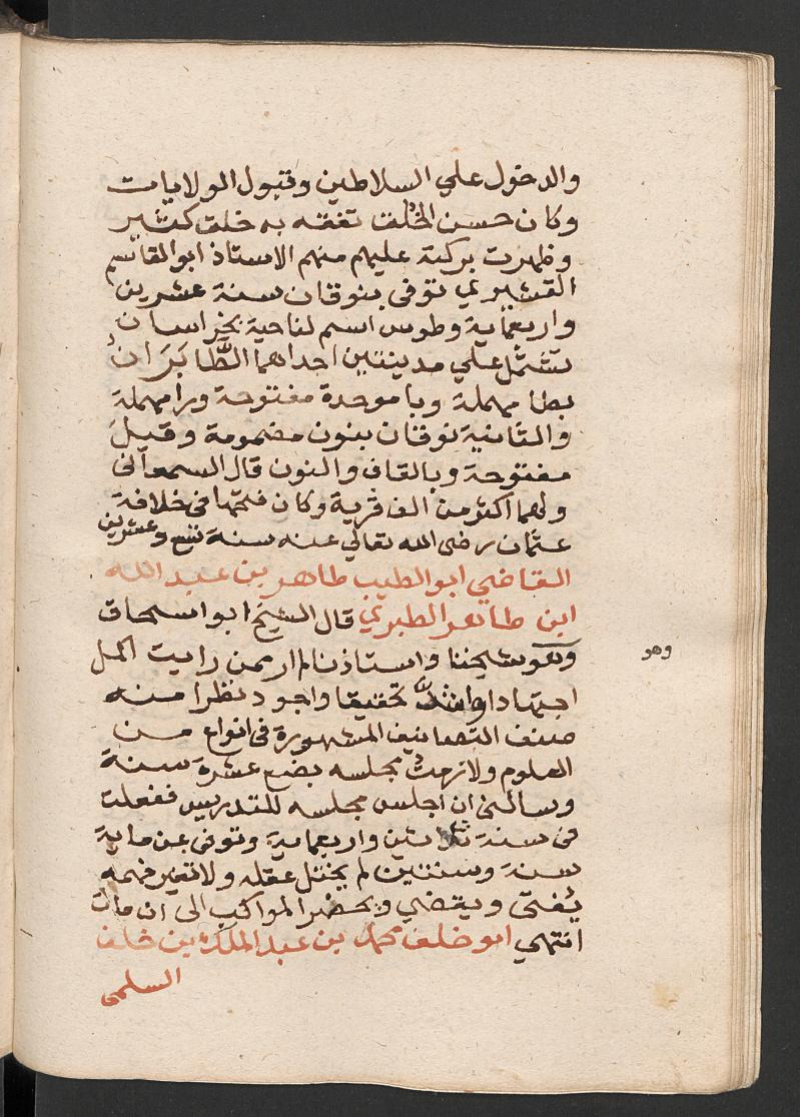 والدخول علي السلاطين وقبول الولايات
وكان حسن الخلق تفقه به خلق كثير
وظهرت بركته عليهم منهم الاستاذ ابو القاسم
القشيري توفى بنوقان سنة عشرين
واربعماية وطوس اسم لناحية بخراسان
تشتمل علي مدينتين احداهما الطَّابَرَان
بطا مهملة وبا موحدة مفتوحة ورا مهملة
والثانية نوقان بنون مضمومة وقيل
مفتوحة وبالقاف والنون قال السمعانى
ولهما اكثر من الف قرية وكان فتحها فى خلافة
عثمان رضى الله تعالي عنه سنة تسع وعشرين
القاضي ابو الطيب طاهر بن عبد الله
ابن طاهر الطبري قال الشيخ ابو اسحاق
وهو شيخنا واستاذنا لم ار ممن رايت اكمل
وهو
اجتهادا واشد تحقيقا واجود نظرا منه
صنف التصانيف المشهورة فى انواع من
العلوم ولازمت مجلسه بضع عشرة سنة
وسالنى ان اجلس مجلسه للتدريس ففعلت
فى سنة ثلاثين واربعماية وتوفى عن ماية
سنة وسنتين لم يختل عقله ولا تغير فهمه
يُفتى ويقضي ويحضر المواكب الى ان مات
انتهي ابو خلف محمد بن عبد الملك بن خلف
السلمى